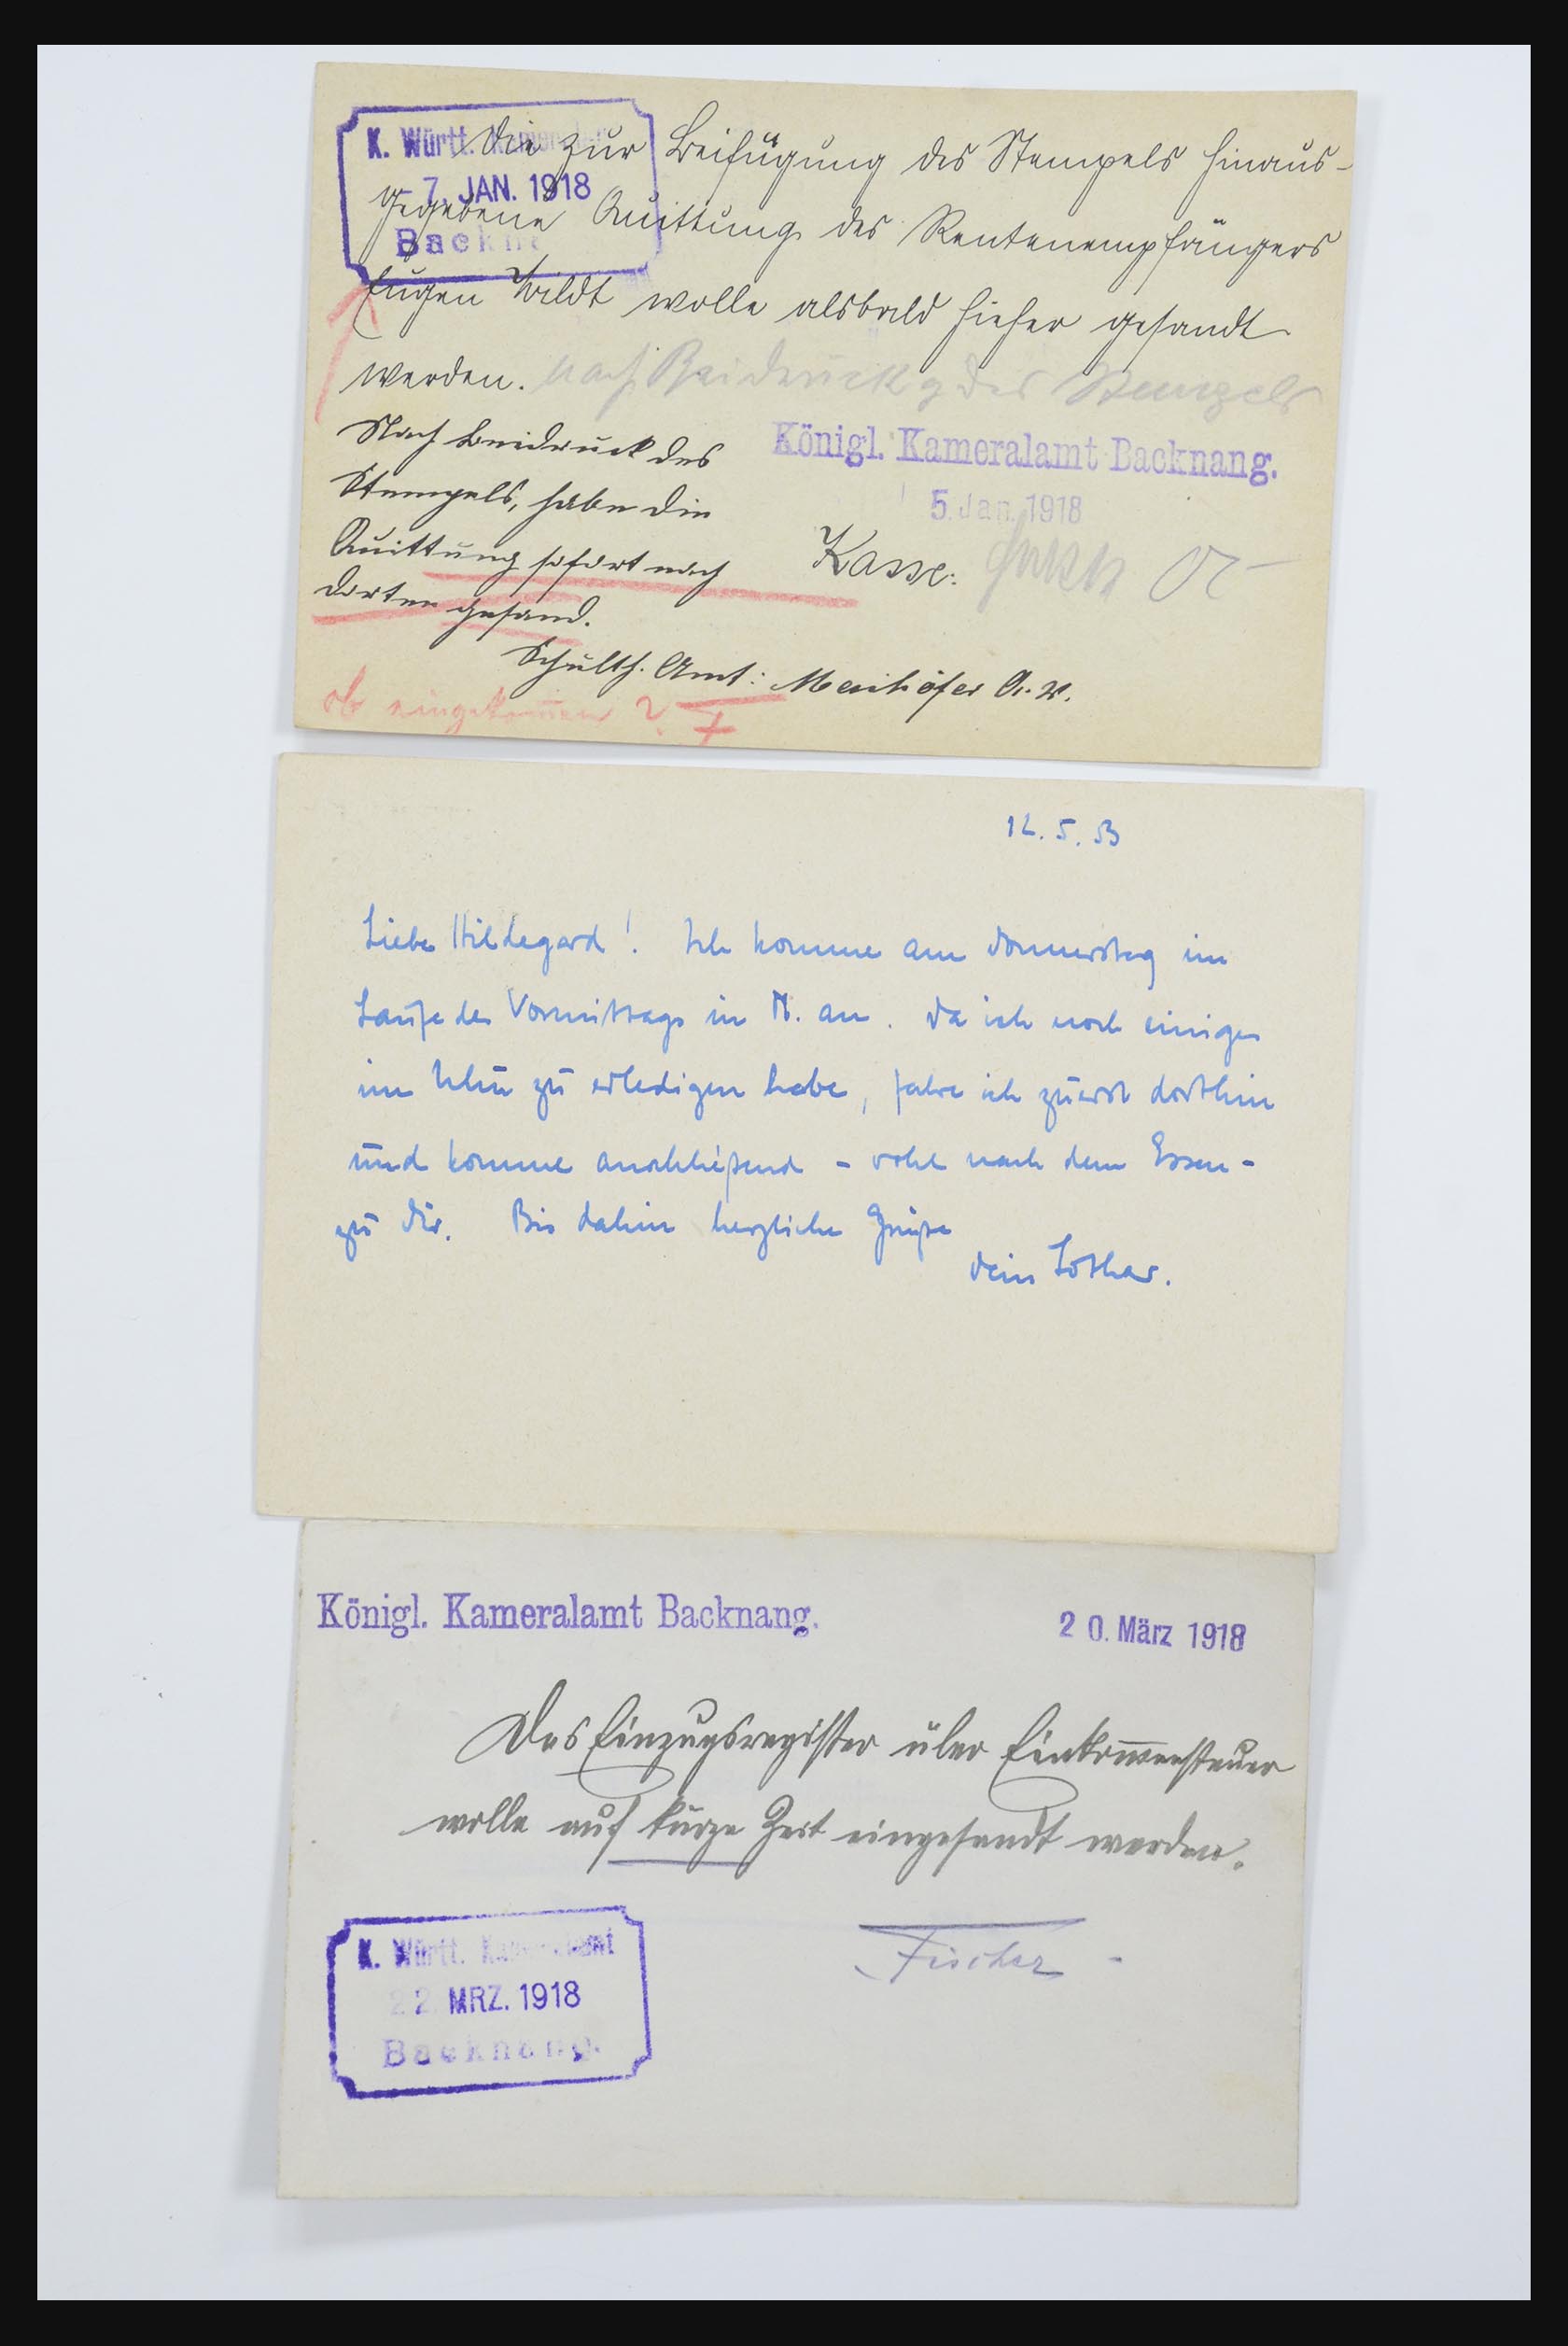 K. Württ. Kameralamt
- 7. JAN. 1918
Backn
Die zur Beifügung des Stempels hinaus-
gegebene Quittung des Rentenempfängers
Eugen Wildt wolle alsbald hieher gesandt
werden. nach Beidruck des Stempels
Königl. Kameralamt Backnang.
5. Jan. 1918
Kasse:
Nach Beidruck des
Stempels, habe die
Quittung sofort nach
dorten gesand.
Schulth. Amt:
ob eingekom̅en?
12. 5. 53
Liebe Hildegard! Ich komme am Donnerstag im
Laufe des Vormittags in N. an. Da ich noch einiges
in Ulm zu erledigen habe, fahre ich zuerst dorthin
und komme anschließend - wohl nach dem Essen -
zu Dir. Bis dahin herzliche Grüße
Dein Lothar.
Königl. Kameralamt Backnang.
20. März 1918
Das Einzugsregister über Einkom̅ensteuer
wolle auf kurze Zeit eingesandt werden.
Fischer
K. Württ. Kameralamt
22. MRZ. 1918
Backnang.